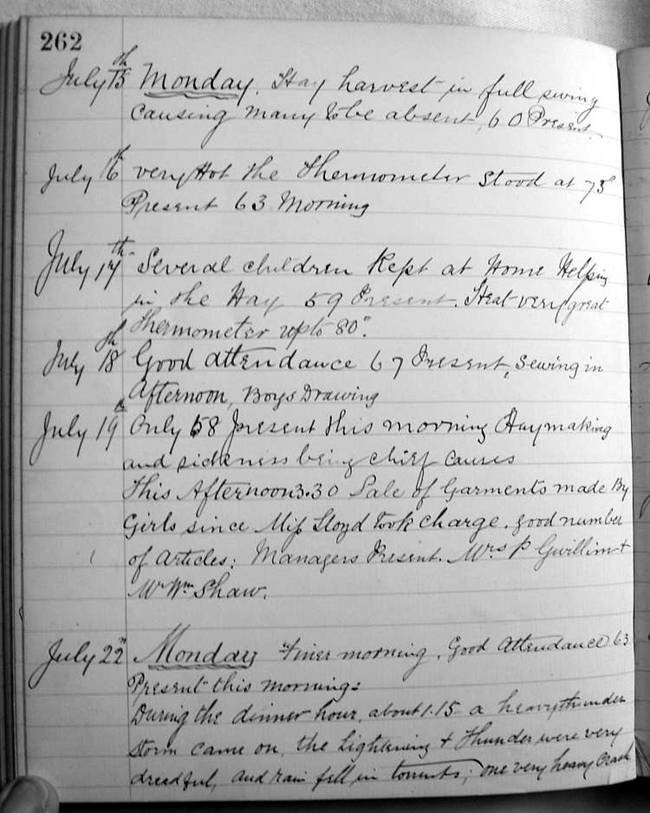 262
July 15th Monday. Hay harvest in full swing
causing many to be absent, 60 Present.
July 16th very Hot the Thermometer Stood at 75°
Present 63 Morning
July 17th Several children Kept at Home Helping
in the Hay 59 Present. Heat very great
Thermometer up to 80°.
July 18th Good attendance 67 Present, Sewing in
Afternoon, Boys Drawing
July 19th Only 58 present this morning Haymaking
and sickness being chief causes
This Afternoon 3.30 Sale of Garments made By
Girls since Miss Lloyd took charge. good number
of Articles: Managers Present. Mrs P Gwillim +
Mr Wm Shaw.
July 22nd Monday Finer morning. Good Attendance 63
Present this morning:
During the dinner hour, about 1.15 a heavy thunder
storm came on, the Lightening + Thunder were very
dreadful, and rain fell in torrents; one very heavy Crash